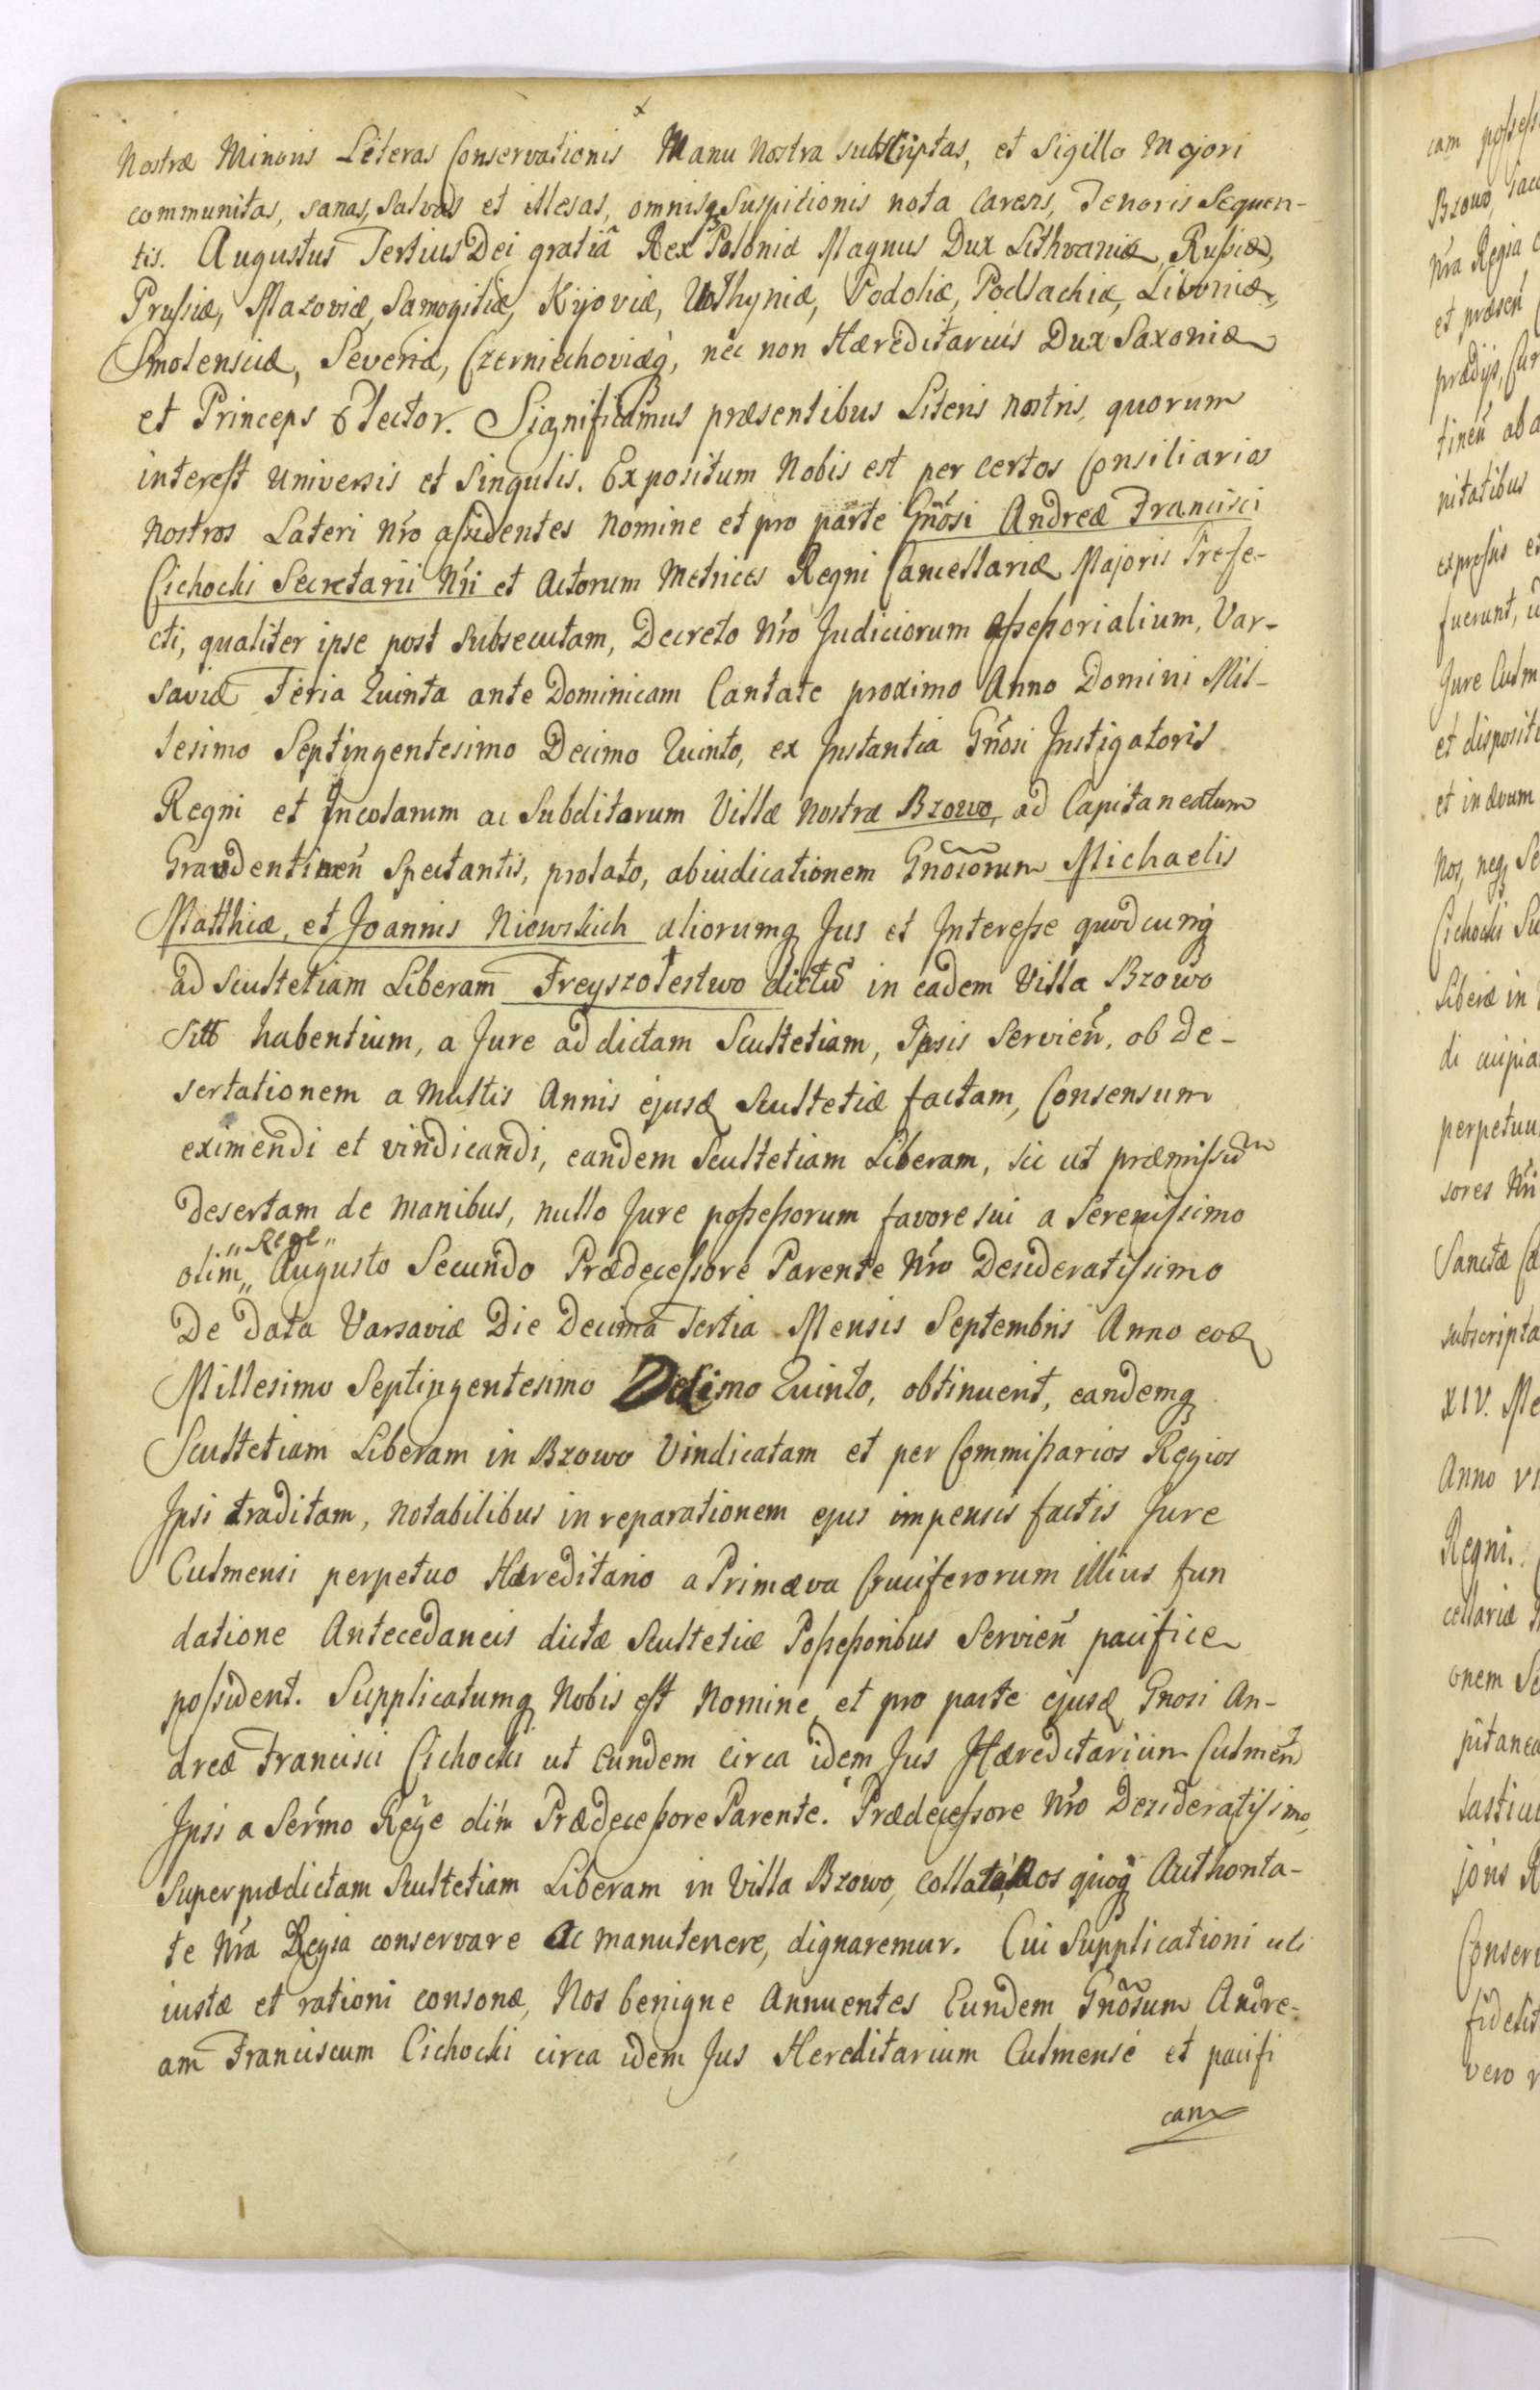 Nostræ Minoris Literas Conservationis Manu Nostra subscriptas, et Sigillo Majori
communitas, sanas, salvas et illesas, omnisq Suspitionis nota carens, Tenoris Sequen-
tis. Augustus Tertius Dei gratiã Rex Poloniæ Magnus Dux Lithvaniæ, Rußiæ,
Prußiæ, Mazoviæ, Samogitiæ, Kijoviæ, Volhyniæ, Podoliæ, Podlachiæ, Livoniæ,
Smolensciæ, Severiæ, Czerniechoviæq, nec non Hæreditarius Dux Saxoniæ
et Princeps Elector. Significamus præsentibus Literis nostris, quorum
interest universis et Singulis. Expositum Nobis est per certos Consiliarios
nostros Lateri Nro aßidentes Nomine et pro parte Gnosi Andreæ Francisci
Cichocki Secretarii Nri et Actorum Metrices Regni Cancellariæ Majoris Præfe-
cti, qualiter ipse post subsecutam, Decreto Nro Judiciorum Aßeßorialium, Var-
saviæ Feria Quinta ante Dominicam Cantate proximo Anno Domini Mil-
lesimo Septingentesimo Decimo Quinto, ex Instantia Gnosi Instigatoris
Regni et Incolarum ac Subditarum Villæ Nostræ Bzowo, ad Capitaneatum
Graudentinen Spectantis, prolato, abiudicationem Gnosorum Michaelis
Matthiæ, et Joannis Niewskich aliorumq Jus et Intereße quodcunq
ad Scultetiam Liberam Freyszolestwo dictũ in eadem Villa Bzowo
Sitt habentium, a Jure ad dictam Scultetiam, Ipsis Servien, ob De-
sertationem a multis Annis ejusd Scultetiæ factam, Consensum
eximendi et vindicandi, eandem Scultetiam Liberam, sic ut præmißum
Desertam de manibus, nullo Jure poßeßorum favore sui a Serenißimo
olim „Rege„ Augusto Secundo Prædeceßore Parente Nro Desideratißimo
De Data Varsaviæ Die Decima Tertia Mensis Septembris Anno eod
Millesimo Septingentesimo Decimo Quinto, obtinuerit, eandemq
Scultetiam Liberam in Bzowo Vindicatam et per Commißarios Regios
Ipsi traditam, notabilibus in reparationem ejus impensis factis Jure
Culmensi perpetuo Hæreditario a Primæva Cruciferorum illius fun
datione Antecedaneis dictæ Scultetiæ Poßeßoribus Servien pacifice
poßident. Supplicatumq Nobis est Nomine, et pro parte ejusd Gnosi An-
dreæ Francisci Cichocki ut eundem circa idem Jus Hæreditarium Culmen
Ipsi a Sermo Rege olim Prædeceßore Parente. Prædeceßore Nro Desideratißimo,
super prædictam Scultetiam Liberam in Villa Bzowo, collatũ, Nos quoq Authorita-
te Nra Regia conservare ac manutenere, dignaremur. Cui Supplicationi uti
iustæ et rationi consonæ, Nos benigne Annuentes Eundem Gnosum Andre-
am Franciscum Cichocki circa idem Jus Hereditarium Culmense et pacifi
cam